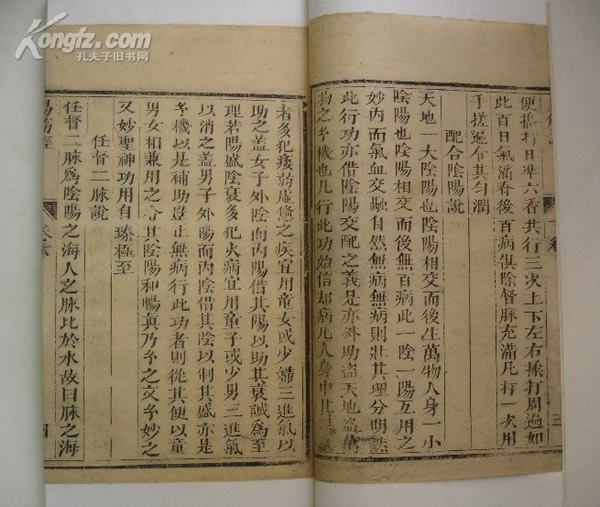 Kongfz.com
孔夫子旧书网
便搥打日準六香共行三次上下左右揉打周遍如
此百日氣滿脊後百病俱除督脉充滿凡打一次用
手搓遍令其勻潤
配合陰陽說
天地一大陰陽也陰陽相交而後生萬物人身一小
陰陽也陰陽相交而後無百病此一陰一陽互用之
妙內而氣血交融自然無病無病則壯其理分明然
此行功亦借陰陽交配之義是亦外助盜天地萬
物之玄機也凡行此功始信却病凡人身中其
者多犯痿弱虛憊之疾宜用童女或少婦三進氣以
助之蓋女子外陰而內陽借其陽以助其衰誠爲至
理若陽盛陰衰多犯火病宜用童子或少男三進氣
以消之蓋男子外陽而內陰借其陰以制其盛亦是
玄機以是補助豈止無病行此功者則從其便以童
男女相兼用之令其陰陽和暢真乃玄之又玄妙之
又妙聖神功用自臻極至
任督二脉說
任督二脉爲陰陽之海人之脉比於水故曰脉之海
易筋經
四
三